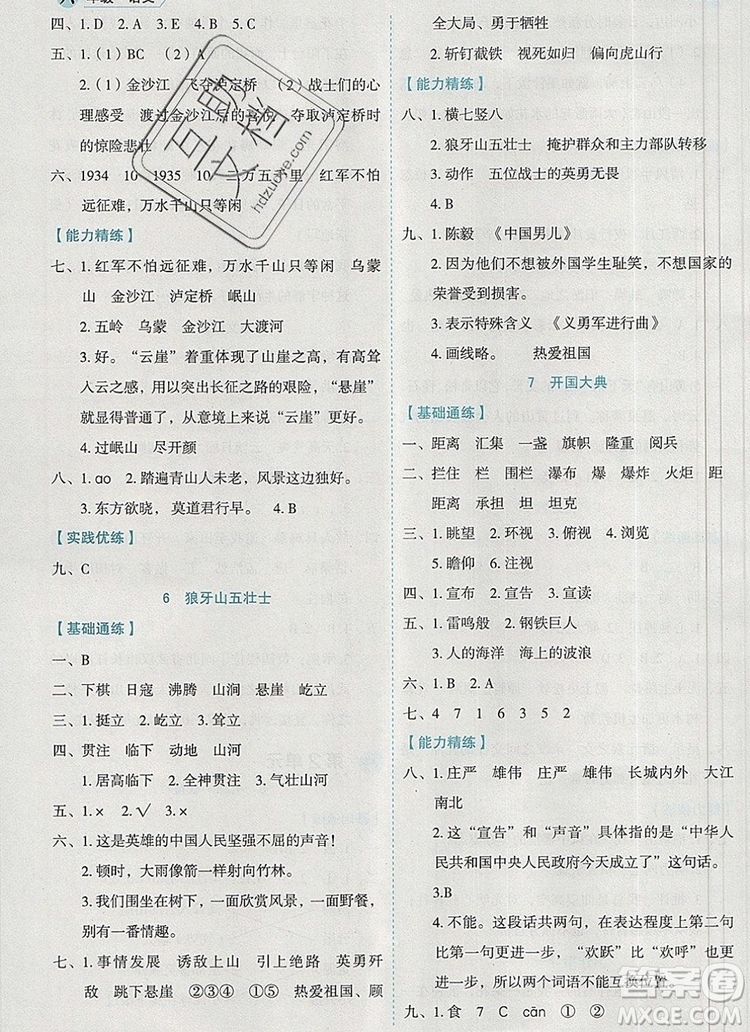 四、1. D　2. A　3. D　4. B
五、1.（1）BC　（2）A
2.（1）金沙江　飞夺泸定桥　（2）战士们的心
理感受　渡过金沙江后的喜悦　夺取泸定桥时
的惊险悲壮
六、1934　10　1935　10　二万五千里　红军不怕
远征难，万水千山只等闲
【能力精练】
七、1. 红军不怕远征难，万水千山只等闲　乌蒙
山　金沙江　泸定桥　岷山
2. 五岭　乌蒙　金沙江　大渡河
3. 好。“云崖”着重体现了山崖之高，有高耸入
云之感，从而突出长征之路的艰险，“悬崖”则
弱了很多，从意境上来说“云崖”更好。
4. 过岷山　尽开颜
八、1. ɑo　2. 踏遍青山人未老，风景这边独好。
3. 东方欲晓，莫道君行早。　4. B
【实践优练】
九、C
6　狼牙山五壮士
【基础通练】
一、B
二、下棋　日寇　沸腾　山涧　悬崖　屹立
三、1. 挺立　2. 屹立　3. 耸立
四、贯注　临下　动地　山河
1. 居高临下　2. 全神贯注　3. 气壮山河
五、1. ×　2. √　3. ×
六、1. 这是英雄的中国人民坚强不屈的声音！
2. 顿时，大雨像箭一样射向竹林。
3. 我们围坐在树下，一面欣赏风景，一面野餐，
别有一番情趣。
七、1. 事情发展　诱敌上山　引上绝路　英勇歼
敌　跳下悬崖　②③④　①⑤　热爱祖国、顾
全大局、勇于牺牲
2. 斩钉截铁　视死如归　偏向虎山行
【能力精练】
八、1. 横七竖八
2. 狼牙山五壮士　掩护群众和主力部队转移
3. 动作　五位战士的英勇无畏
4. B
九、1. 陈毅　《中国男儿》
2. 因为他不想被外国学生耻笑，不想国家的
荣誉受到损失。
3. 表示特殊含义　《义勇军进行曲》
4. 画线略。　热爱祖国
7　开国大典
【基础通练】
一、距离　汇集　一盏　旗帜　隆重　阅兵
二、拦住　栏　栏杆　瀑布　爆　爆炸　火炬　距
距离　承担　担　坦　坦克
三、1. 眺望　2. 环视　3. 俯视　4. 浏览
5. 瞻仰　6. 注视
四、1. 宣布　2. 宣告　3. 宣读
五、1. 雷鸣般　2. 钢铁巨人
3. 人的海洋　海上的波浪
六、1. B　2. A
七、4　7　1　6　3　5　2
【能力精练】
八、1. 庄严　雄伟　庄严　雄伟　长城内外　大江
南北
2. 这“宣告”和“声音”具体指的是“中华人
民共和国中央人民政府今天成立了”这句话。
3. B
4. 不能。这段话共两句，在表达程度上第二句
比第一句更进一步，“欢跃”比“欢呼”也更
进一步，所以两个词语不能互换位置。
九、1. 食　7　C　cān　①　②
互助文档
hdzuoye.com
答案圈
MXQE.COM